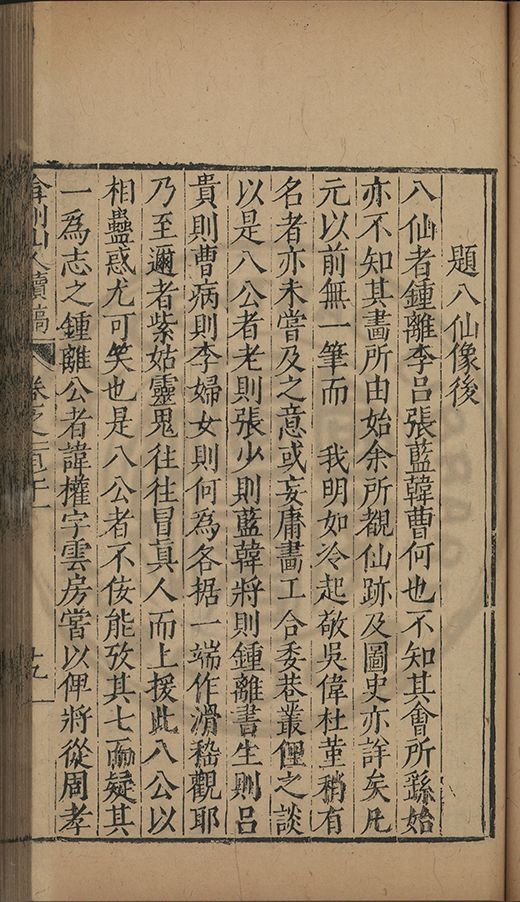 題八仙像後
八仙者鍾離李呂張藍韓曹何也不知其會所繇始
亦不知其畫所由始余所覩仙跡及圖史亦詳矣凡
元以前無一筆而 我明如冷起敬吳偉杜堇稍有
名者亦未嘗及之意或妄庸畫工合委巷叢俚之談
以是八公者老則張少則藍韓將則鍾離書生則呂
貴則曹病則李婦女則何為各据一端作滑稽觀耶
乃至邇者紫姑靈鬼往往冒真人而上援此八公以
相蠱惑尤可笑也是八公者不佞能攷其七而疑其
一為志之鍾離公者諱權字雲房嘗以俾將從周孝
弇州山人續稿 卷之一百七十一 十九